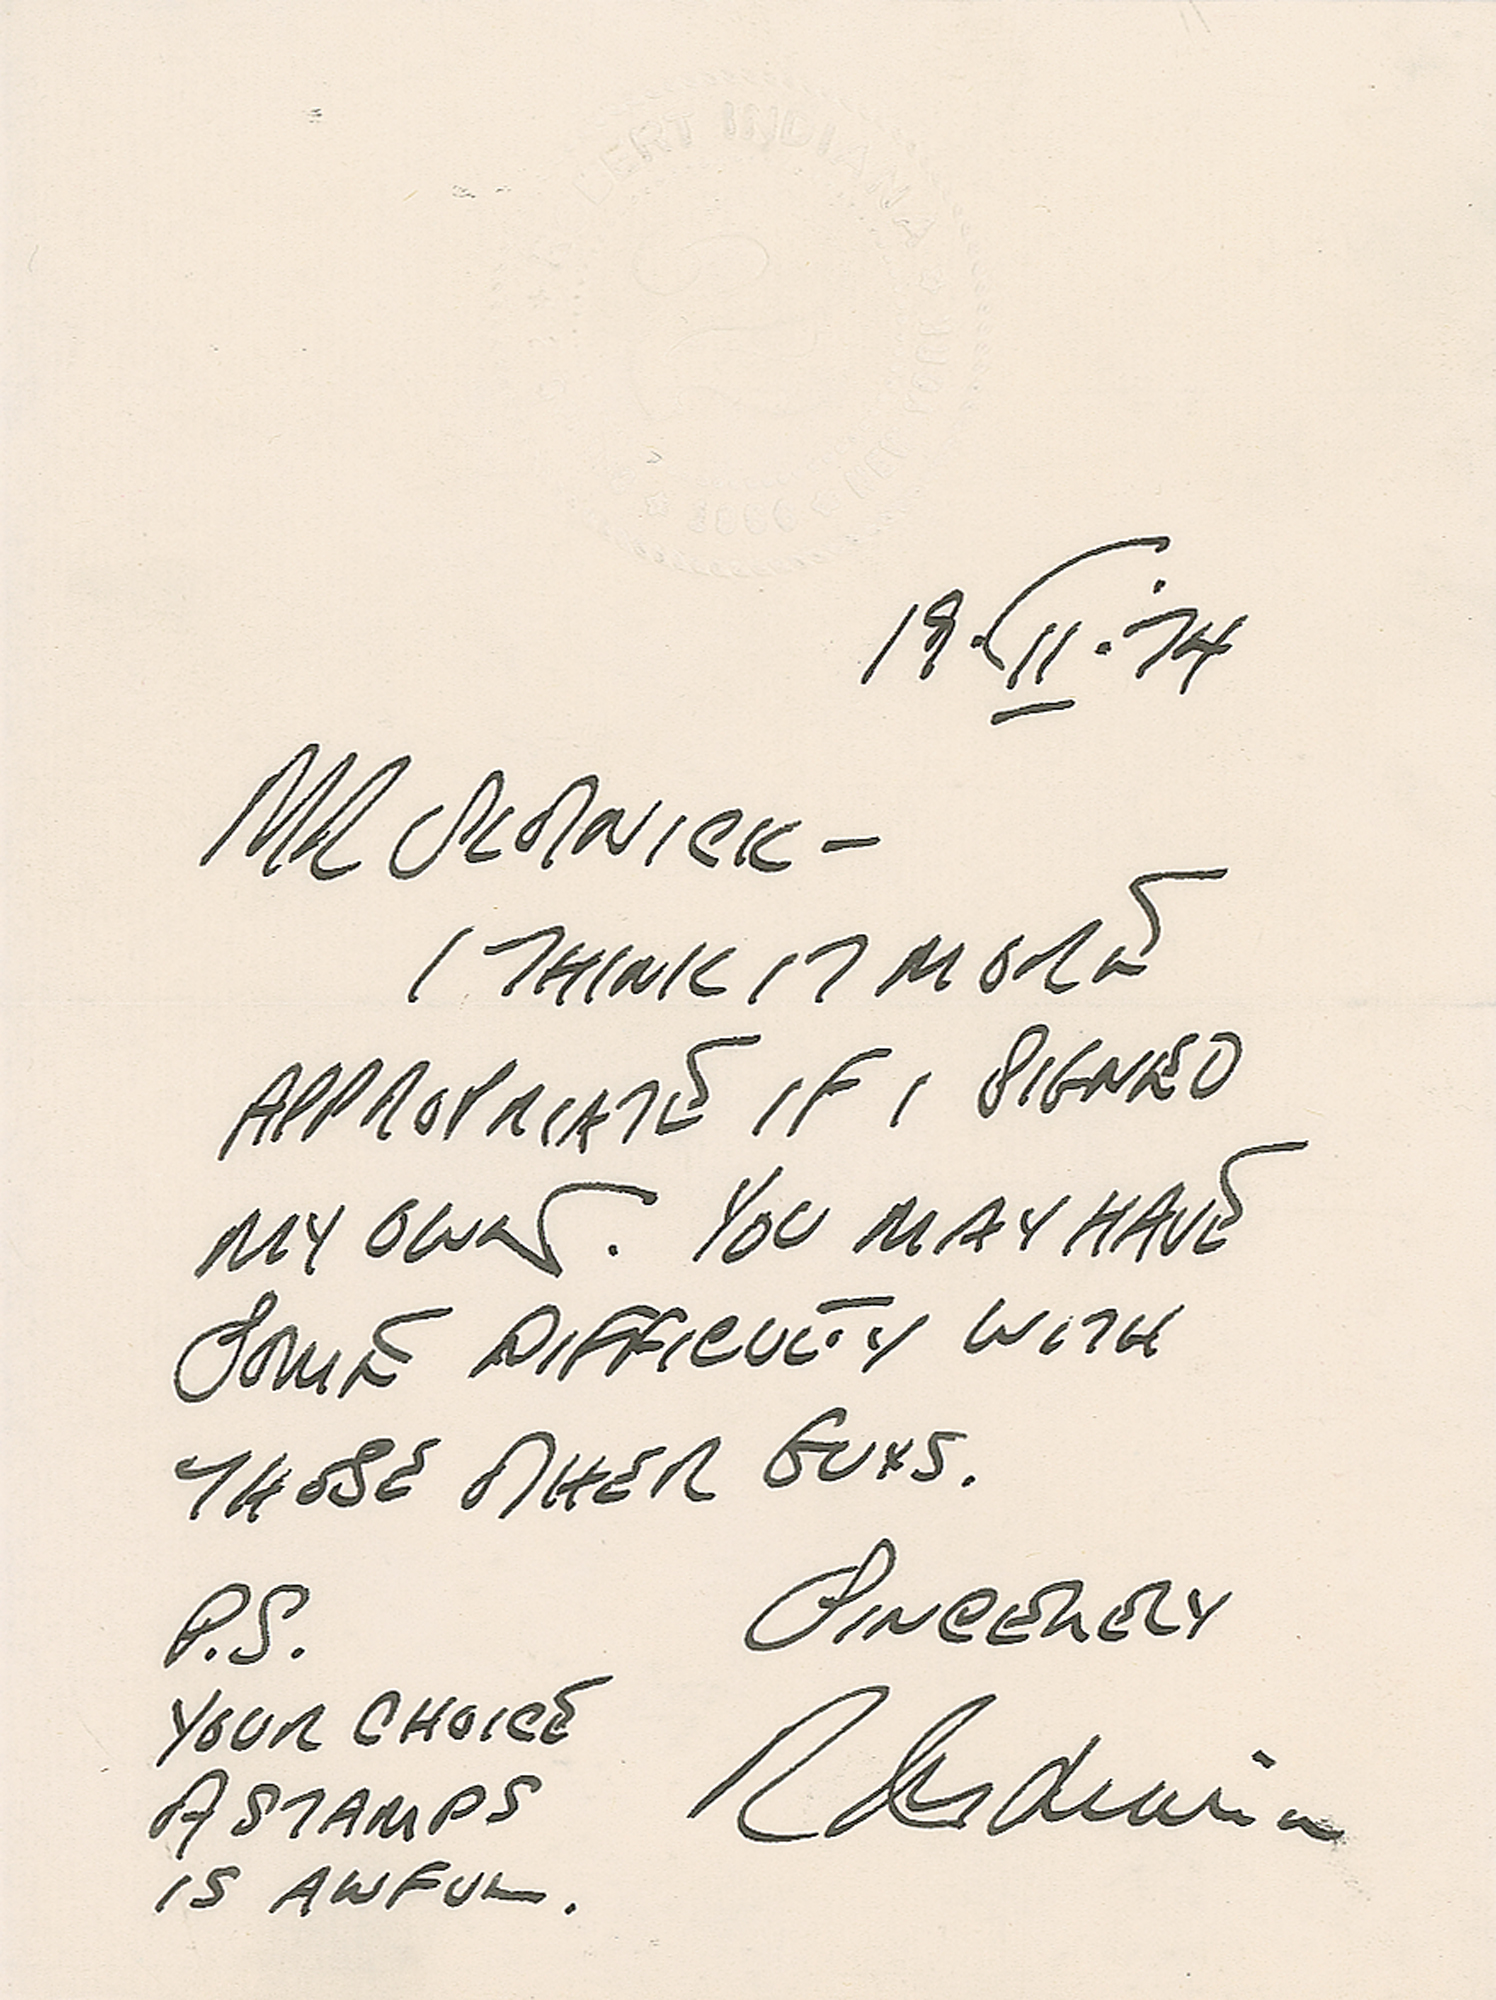 BERT INDIANA
19·II·'74
MR SLOTNICK –
I THINK IT MORE
APPROPRIATE IF I SIGNED
MY OWN. YOU MAY HAVE
SOME DIFFICULTY WITH
THOSE OTHER GUYS.
SINCERELY
P.S.
YOUR CHOICE
OF STAMPS
IS AWFUL.
R Indiana